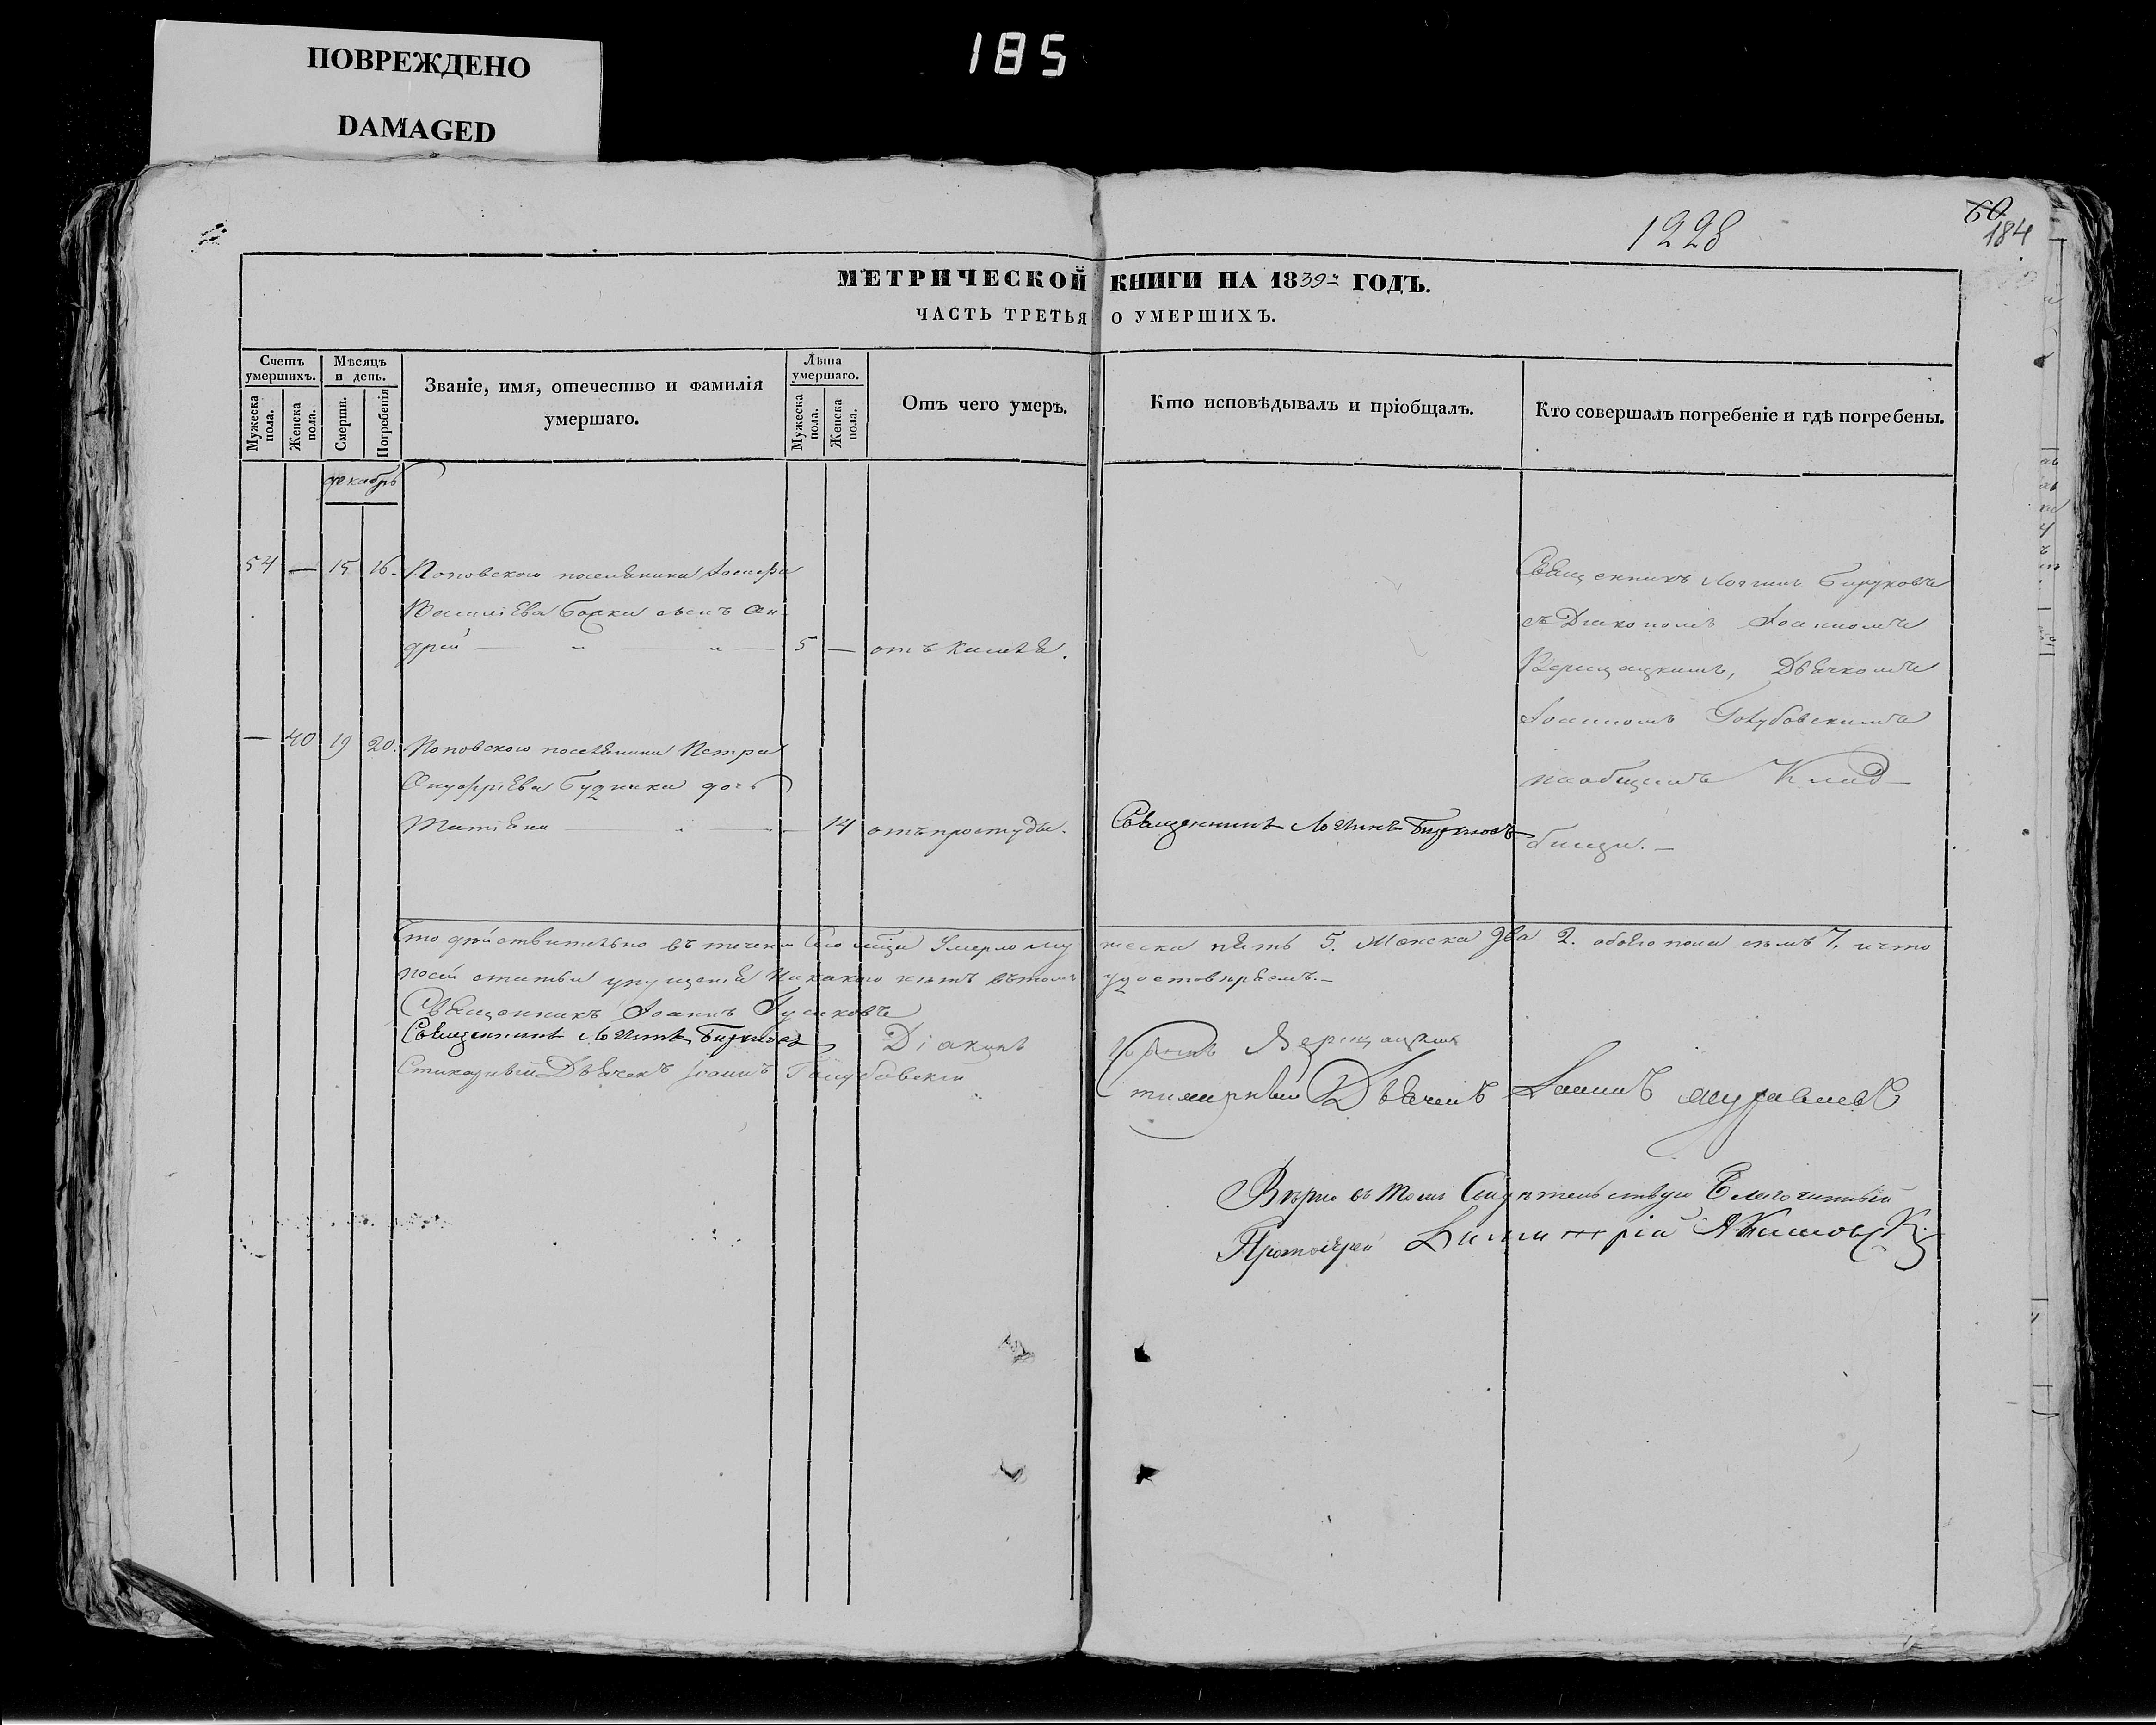 ПОВРЕЖДЕНО
DAMAGED
185
1228
60
184
МЕТРИЧЕСКОЙ КНИГИ НА 1839й ГОДЪ.
ЧАСТЬ ТРЕТЬЯ О УМЕРШИХЪ.
Счетъ умершихъ.
Мужеска пола.
Женска пола.
Мѣсяцъ и день.
Смерти.
Погребенія
Званіе, имя, отечество и фамилія умершаго.
Лѣта умершаго.
Мужеска пола.
Женска пола.
Отъ чего умеръ.
Кто исповѣдывалъ и пріобщалъ.
Кто совершалъ погребеніе и гдѣ погребены.
декабрь
54 — 15 16. Поповского поселянина Іосифа
Василіева сынъ Ан
дрей — " — " — 5 — отъ кашля.
— 40 19 20. Поповского поселянина Петра
Ануфріева Будника дочь
Татіана — 14 отъ простуды. Священникъ Логинъ Бируковъ
Священникъ Логинъ Бируковъ
съ Діакономъ Іоанномъ
Верещацкимъ, Дьячкомъ
Іоанномъ Голубовскимъ
наобщемъ Клад
бищи. —
Что дѣйствительно въ теченіи сего мѣсяца Умерло му жеска пять 5. Женска два 2. обоего пола семь 7. и что
посей статьи упущенія Никакого нѣтъ вътомъ удостовѣряемъ. —
Священникъ Іоаннъ
Священникъ Логинъ Бируковъ Діаконъ Іоаннъ Верещацкій
Стихарный Дьячекъ Іоаннъ Голубовскій
Стихарный Дьячекъ Іоаннъ Муравлевъ
Вѣрно въ Томъ Свидѣтельствую Благочинный
Протоіерей Димитрій